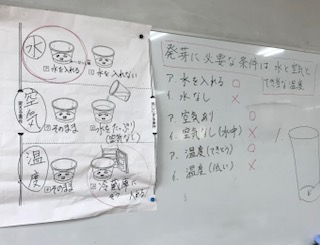 水
㋐水を入れる
㋑水を入れない
空気
㋐そのまま
㋑水をたっぷり
(空気なし)
温度
㋐そのまま
㋑冷蔵庫に
入れる
発芽に必要な条件は水と空気と
てきとうな温度
ア. 水を入れる ○
イ. 水なし ×
ア. 空気あり ○
イ. 空気なし(水中) ×
ア. 温度(てきとう) ○
イ. 温度(低い) ×